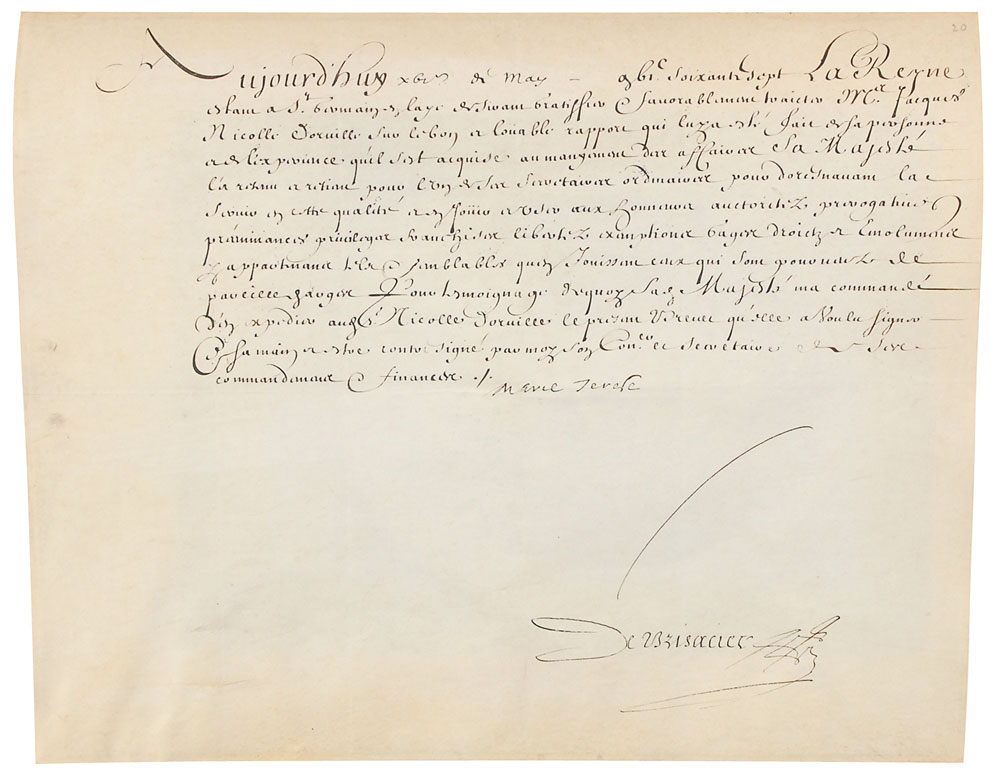 20
Aujourd'huy xbe de May _ gbic soixante sept La Reyne
estant a St Germain en laye desirant gratiffier & favorablement traicter Mr. Jacques
Nicolle Dorville sur le bon et louable rapport qui luy a esté fait de sa personne
et de l'experiance qu'il s'est acquise au manyement des affaires Sa Majesté
l'a retenu et retient pour l'un de ses Secretaires ordinaires pour doresnavant la
Servir en cette qualité et en Jouir et user aux honneurs auctoritez prerogatives
præminances privileges franchises libertez exemptions gages droictz et Emolumens
y appartenans telz & semblables qu'en Jouissent ceux qui sont pourveus de
pareille charge Pour temoignage dequoy Sade Majesté m'a commandé
d'en expedier aud. Sr Nicolle Dorville le present Brevet qu'elle a voulu signer
de sa main et estre contresigné par moy son Coner et Secretaire de ses
commandemens & finances ./.
Marie Terese
De Brisacier